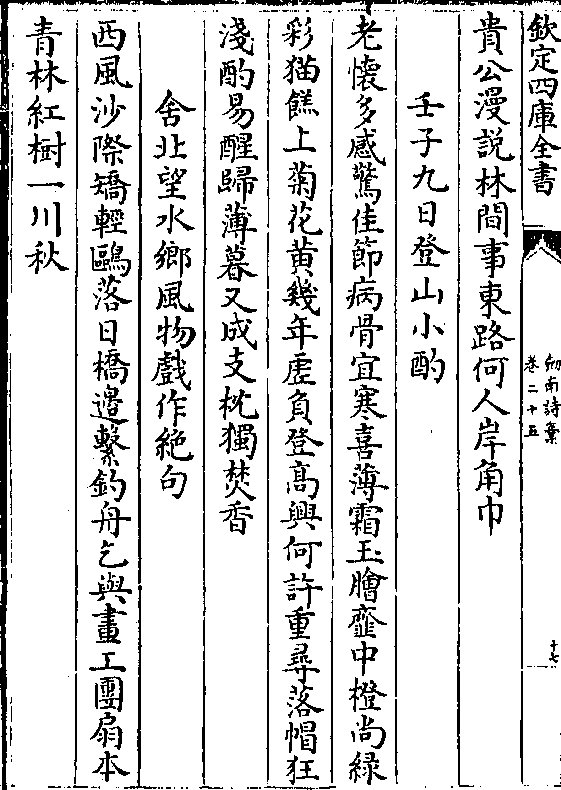 欽定四庫全書
劍南詩藁
卷二十五
十七
貴公漫說林間事東路何人岸角巾
壬子九日登山小酌
老懷多感驚佳節病骨宜寒喜薄霜玉膾韲中橙尚綠
彩猫餻上菊花黄幾年虛負登髙興何許重尋落帽狂
淺酌易醒歸薄暮又成支枕獨焚香
舍北望水鄉風物戲作絶句
西風沙際矯輕鷗落日橋邉繫釣舟乞與畫工團扇本
青林紅樹一川秋